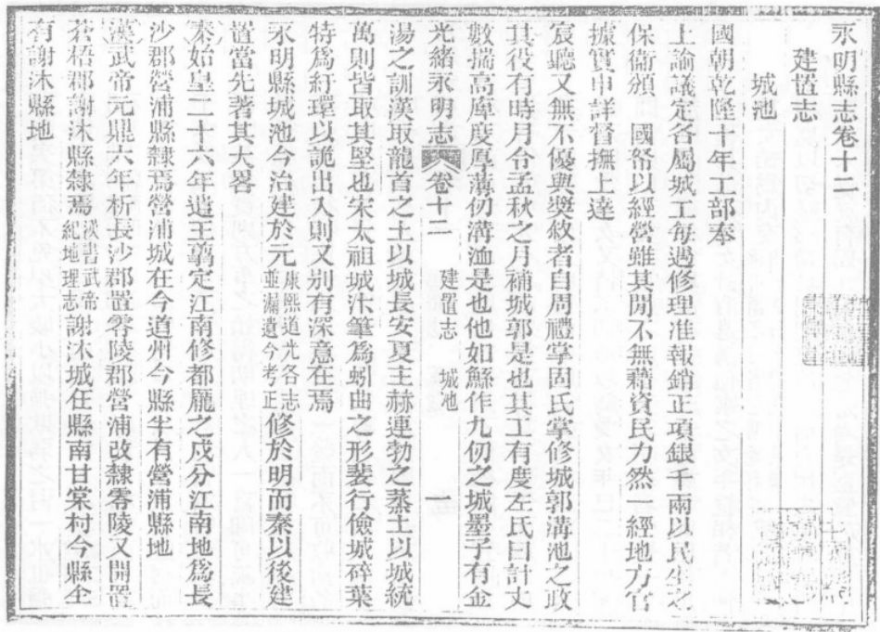 永明縣志卷十二
建置志
城池
國朝乾隆十年工部奉
上諭議定各屬城工每遇修理准報銷正項銀千兩以民生之
保衛頒 國帑以經營雖其閒不無藉資民力然一經地方官
據實申詳督撫上達
宸聽又無不優與獎敘者自周禮掌固氏掌修城郭溝池之政
其役有時月令孟秋之月補城郭是也其工有度左氏曰計丈
數揣高庳度厚薄仞溝洫是也他如鯀作九仞之城墨子有金
光緒永明志 卷十二 建置志 城池 一
湯之訓漢取龍首之土以城長安夏主赫連勃之蒸土以城統
萬則皆取其堅也宋太祖城汴筆爲蚓曲之形裴行儉城碎葉
特爲紆環以詭出入則又别有深意在焉
永明縣城池今治建於元康熙道光各志並漏遺今考正修於明而秦以後建
置當先著其大畧
秦始皇二十六年遣王翦定江南修都龐之戍分江南地爲長
沙郡營浦縣隸焉營浦城在今道州今縣半有營浦縣地
漢武帝元鼎六年析長沙郡置零陵郡營浦改隸零陵又開置
蒼梧郡謝沐縣隸焉漢書武帝紀地理志謝沐城在縣南甘棠村今縣全
有謝沐縣地